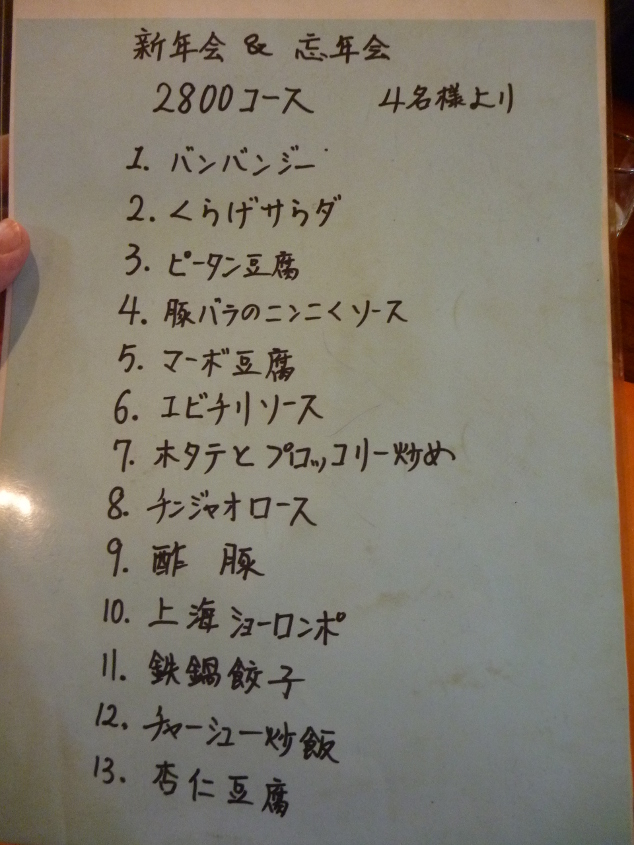 新年会 & 忘年会
2800コース 4名様より
1. バンバンジー
2. くらげサラダ
3. ピータン豆腐
4. 豚バラのニンニくソース
5. マーボ豆腐
6. エビチリソース
7. ホタテとブロッコリー炒め
8. チンジャオロース
9. 酢豚
10. 上海ショーロンポ
11. 鉄鍋餃子
12. チャーシュー炒飯
13. 杏仁豆腐